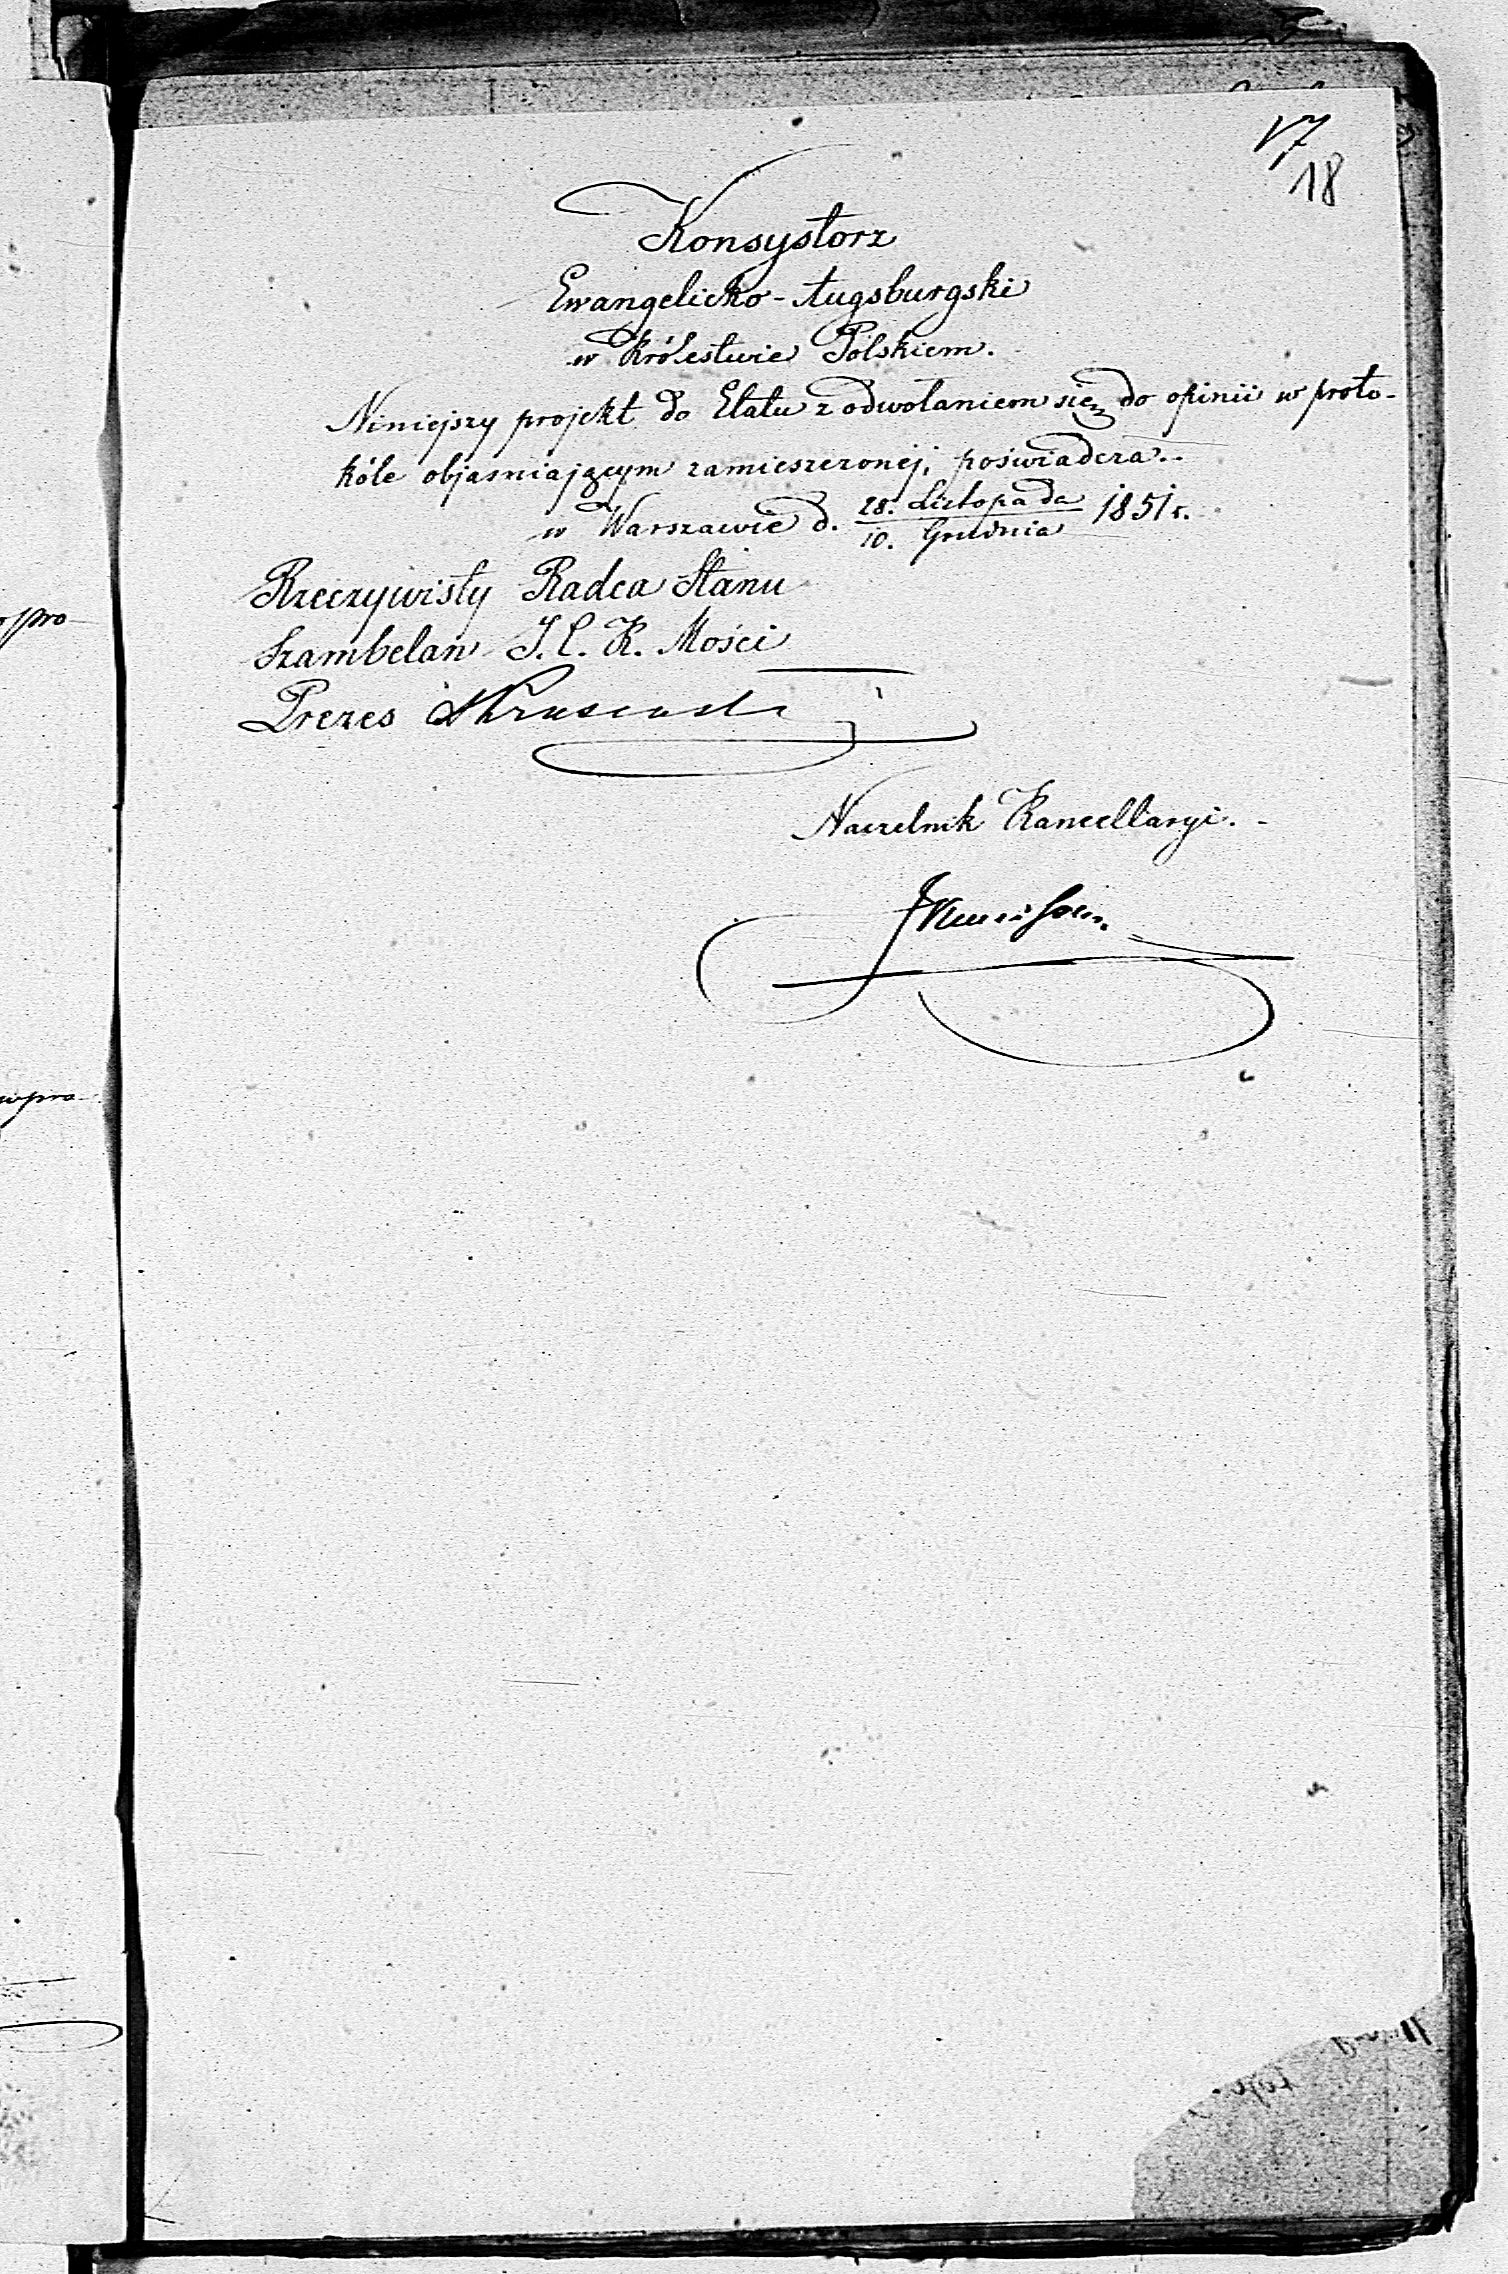 17
18
Konsystorz
Ewangelicko-Augsburgski
w Królestwie Pólskiem.
Niniejszy projekt do Etatu z odwołaniem się do opinii w proto-
kóle objasniającym zamieszczonej, poświadcza.
w Warszawie d. 28. Listopada 1851 r.
10. Grudnia
Rzeczywisty Radca Stanu
Szambelan J. C. K. Mości
Prezes
Naczelnik Kancellaryi.
pro
wpro